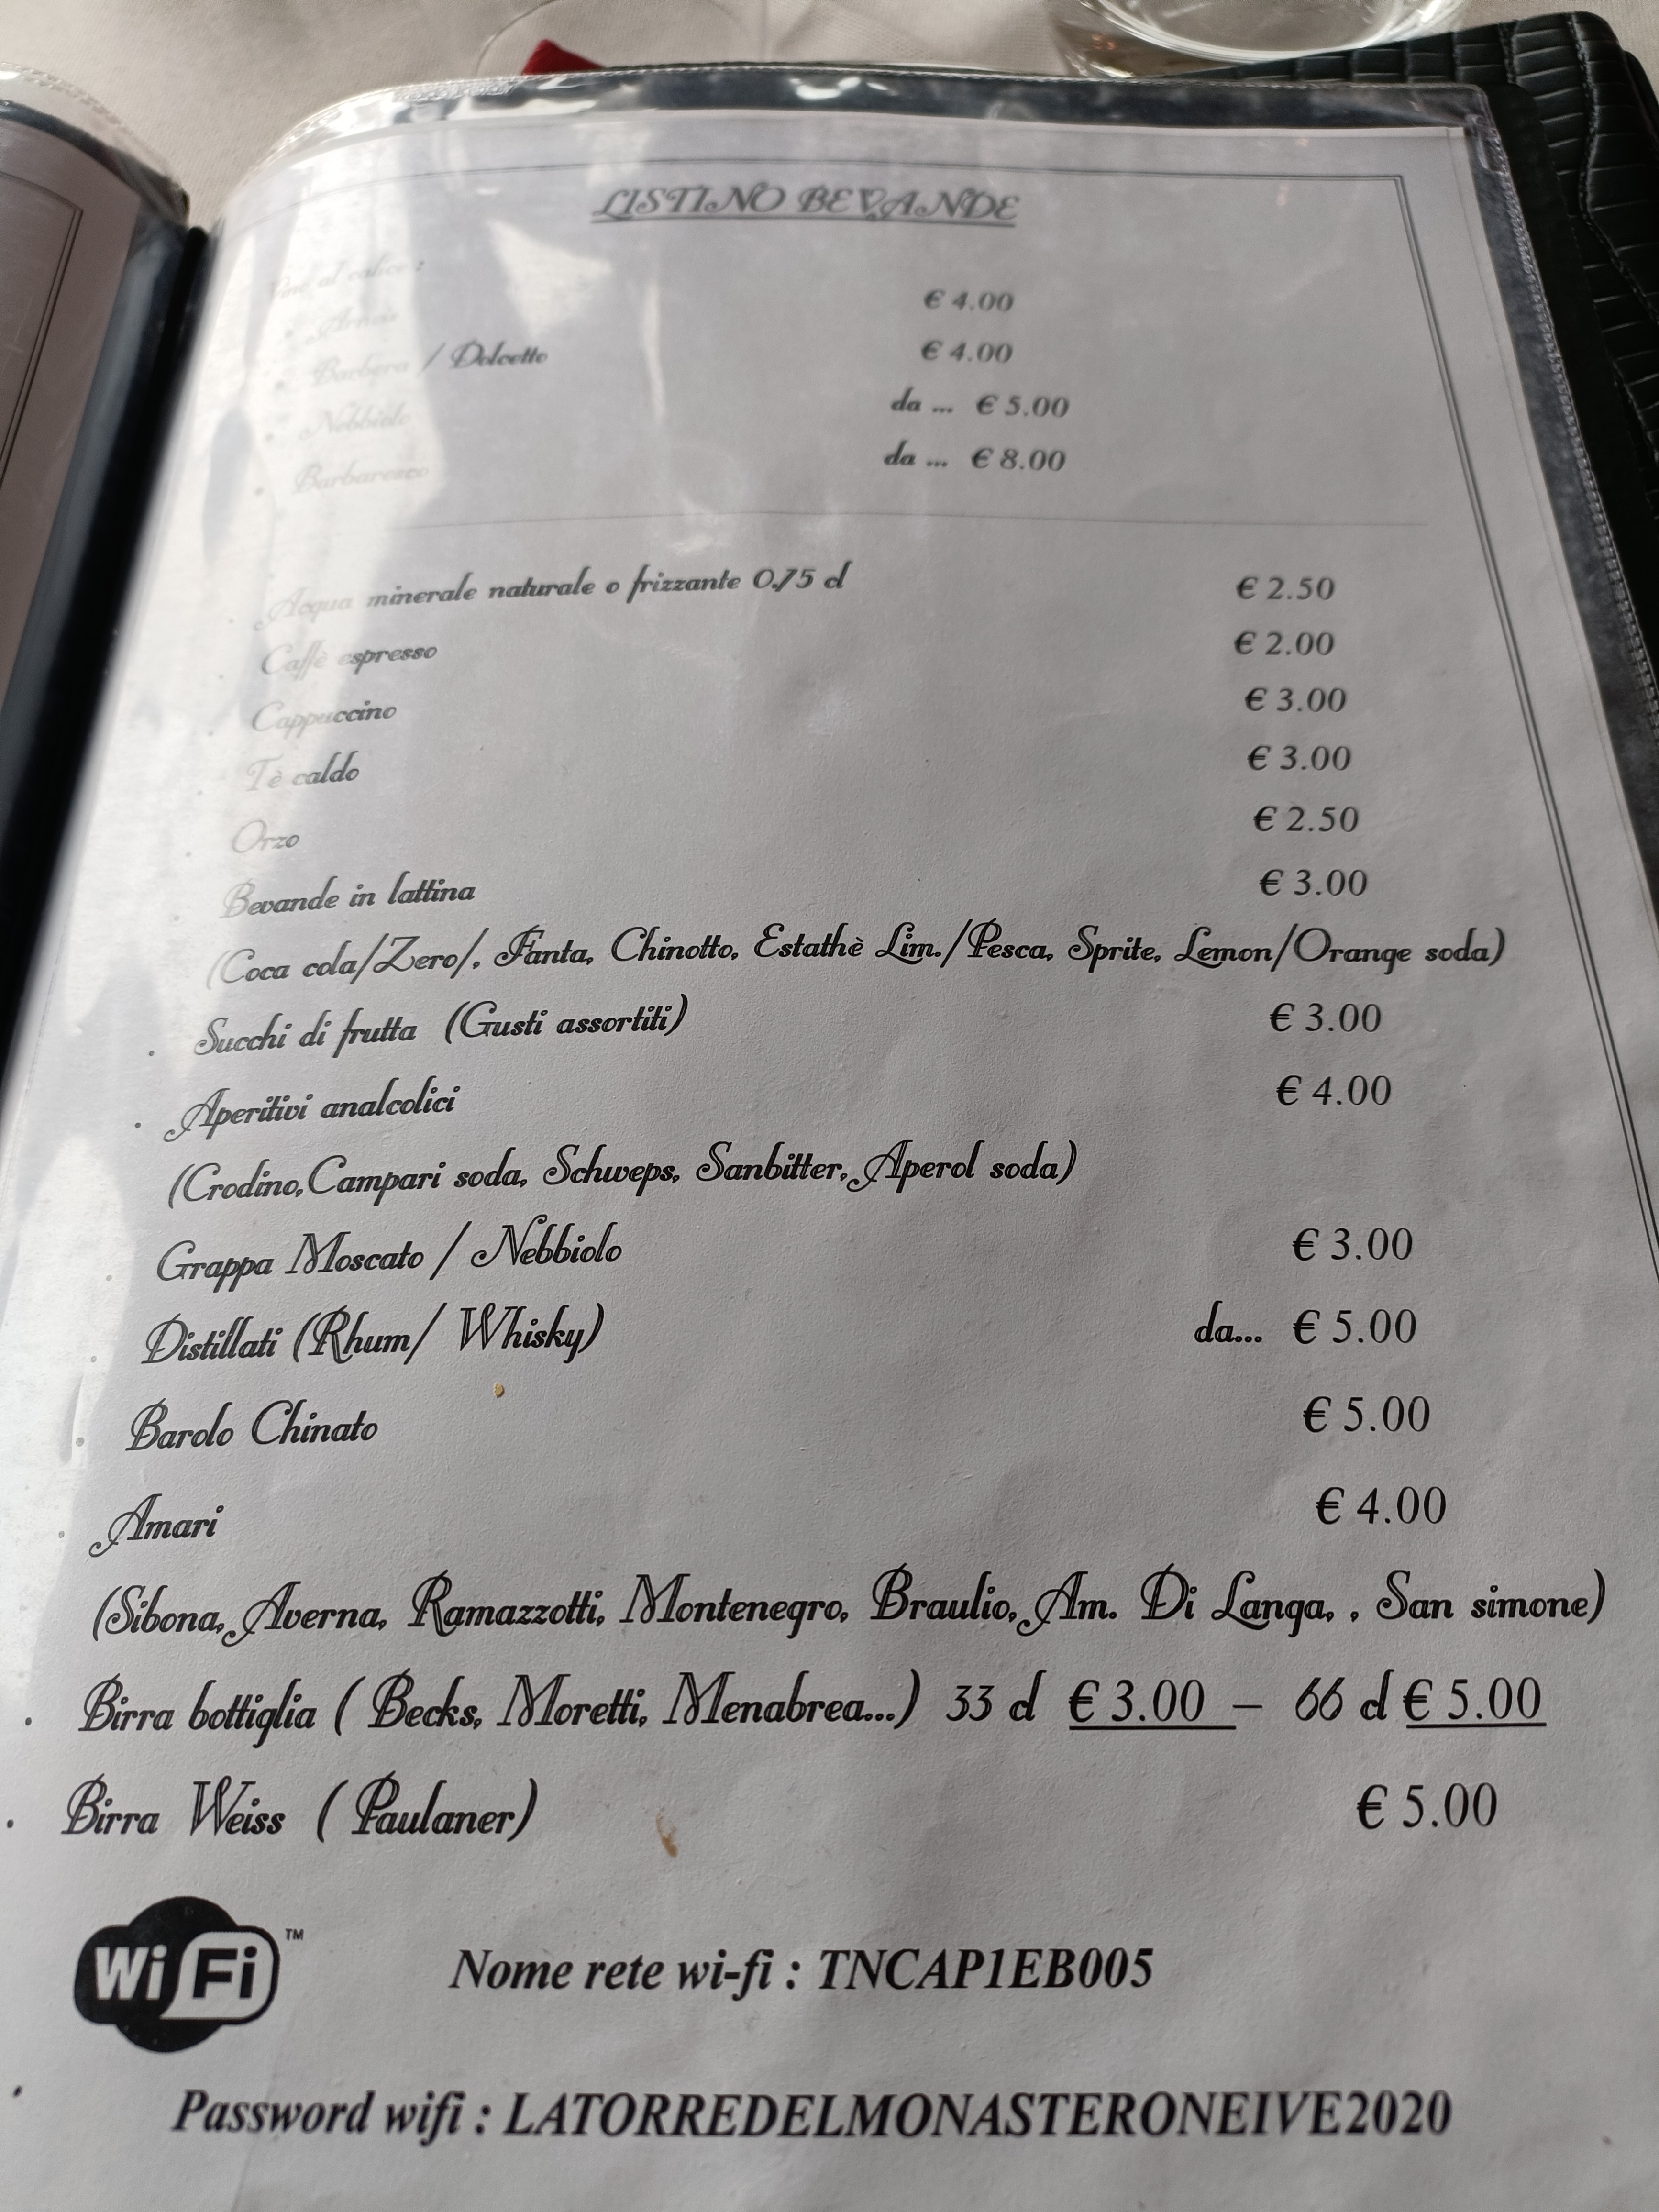 LISTINO BEVANDE
Vini al calice :
Arneis € 4.00
Barbera / Dolcetto € 4.00
Nebbiolo da ... € 5.00
Barbaresco da ... € 8.00
Acqua minerale naturale o frizzante 0,75 cl € 2.50
Caffè espresso € 2.00
Cappuccino € 3.00
Tè caldo € 3.00
Orzo € 2.50
Bevande in lattina € 3.00
(Coca cola/Zero/, Fanta, Chinotto, Estathè Lim./Pesca, Sprite, Lemon/Orange soda)
Succhi di frutta (Gusti assortiti) € 3.00
Aperitivi analcolici € 4.00
(Crodino,Campari soda, Schweps, Sanbitter, Aperol soda)
Grappa Moscato / Nebbiolo € 3.00
Distillati (Rhum/ Whisky) da... € 5.00
Barolo Chinato € 5.00
Amari € 4.00
(Sibona, Averna, Ramazzotti, Montenegro, Braulio, Am. Di Langa, , San simone)
Birra bottiglia ( Becks, Moretti, Menabrea...) 33 cl € 3.00 – 66 cl € 5.00
Birra Weiss ( Paulaner) € 5.00
Wi Fi ™
Nome rete wi-fi : TNCAP1EB005
Password wifi : LATORREDELMONASTERONEIVE2020